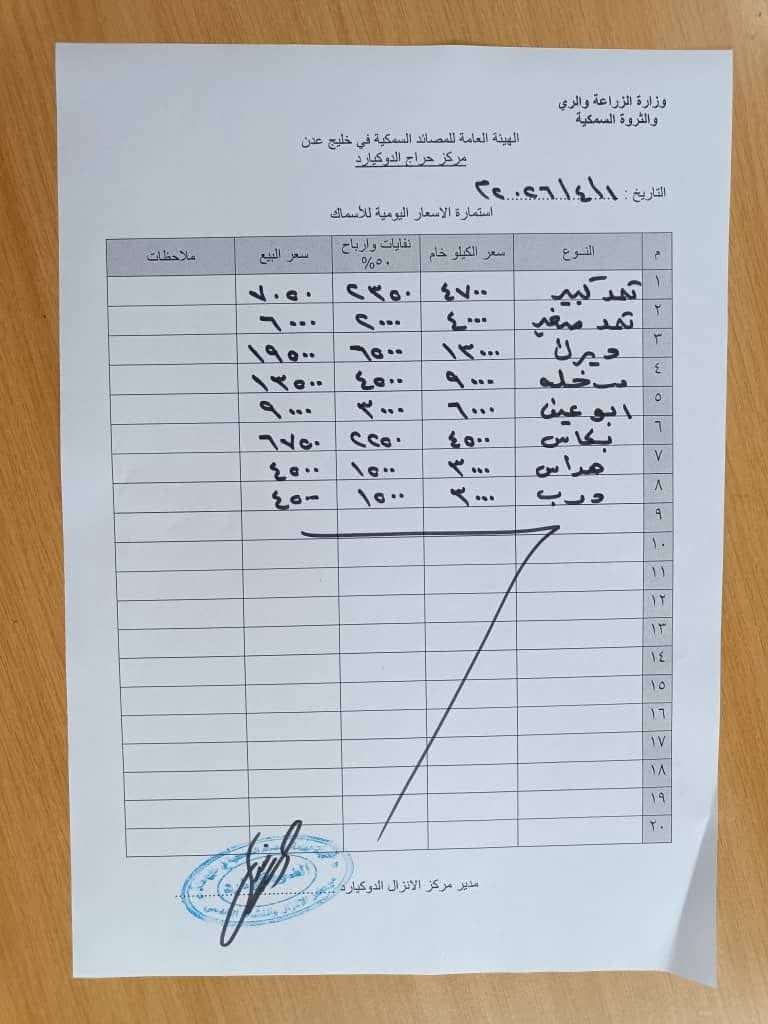 وزارة الزراعة والري
والثروة السمكية
الهيئة العامة للمصائد السمكية في خليج عدن
مركز حراج الدوكيارد
التاريخ : ١/٤/٢٠٢٦م
استمارة الاسعار اليومية للأسماك
م النوع سعر الكيلو خام نفايات وارباح ٥٠% سعر البيع ملاحظات
١ ثمد كبير ٤٧٠٠ ٢٣٥٠ ٧٠٥٠
٢ ثمد صغير ٤٠٠٠ ٢٠٠٠ ٦٠٠٠
٣ ديرك ١٣٠٠٠ ٦٥٠٠ ١٩٥٠٠
٤ سخله ٩٠٠٠ ٤٥٠٠ ١٣٥٠٠
٥ ابو عين ٦٠٠٠ ٣٠٠٠ ٩٠٠٠
٦ ٤٥٠٠ ٢٢٥٠ ٦٧٥٠
٧ ٣٠٠٠ ١٥٠٠ ٤٥٠٠
٨ درب ٣٠٠٠ ١٥٠٠ ٤٥٠٠
٩
١٠
١١
١٢
١٣
١٤
١٥
١٦
١٧
١٨
١٩
٢٠
مدير مركز الانزال الدوكيارد